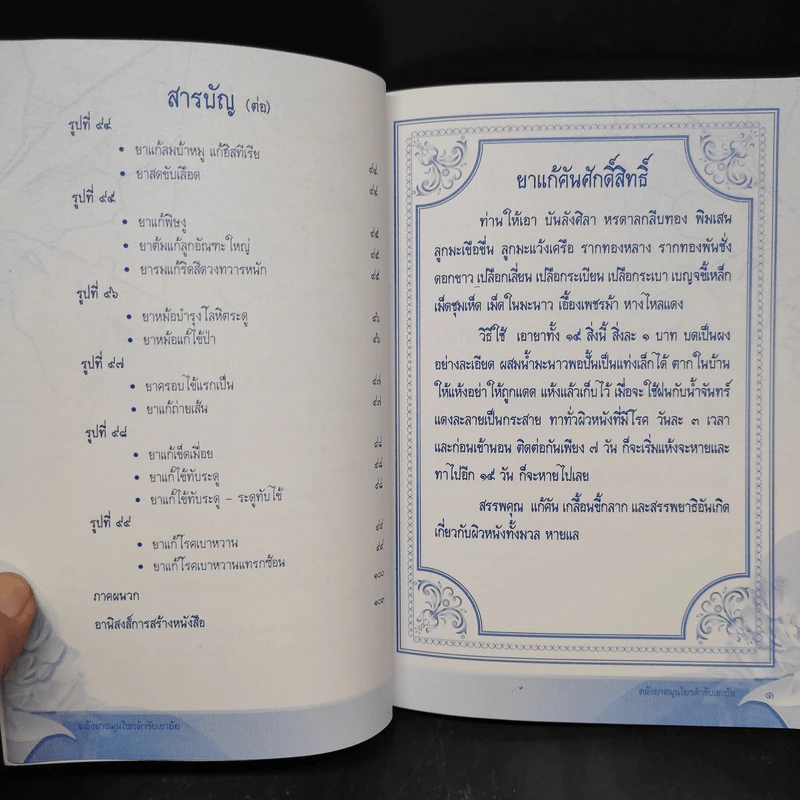 สารบัญ (ต่อ)
รูปที่ ๙๔
• ยาแก้ลมบ้าหมู แก้ฮิสทีเรีย ๙๔
• ยาสตรีขับเลือด ๙๔
รูปที่ ๙๕
• ยาแก้พิษงู ๙๕
• ยาต้มแก้ลูกอัณฑะใหญ่ ๙๕
• ยารมแก้ริดสีดวงทวารหนัก ๙๕
รูปที่ ๙๖
• ยาหม้อบำรุงโลหิตระดู ๙๖
• ยาหม้อแก้ไข้ป่า ๙๖
รูปที่ ๙๗
• ยาครอบไข้แรกเป็น ๙๗
• ยาแก้ถ่ายเส้น ๙๗
รูปที่ ๙๘
• ยาแก้เข็ดเมื่อย ๙๘
• ยาแก้ไข้ทับระดู ๙๘
• ยาแก้ไข้ทับระดู – ระดูทับไข้ ๙๘
รูปที่ ๙๙
• ยาแก้โรคเบาหวาน ๙๙
• ยาแก้โรคเบาหวานแทรกซ้อน ๙๙
ภาคผนวก ๑๐๐
อานิสงส์การสร้างหนังสือ
คลังยาสมุนไพรตำรับเขาอ้อ
ยาแก้คันศักดิ์สิทธิ์
ท่านให้เอา บันลังศิลา หรดาลกลีบทอง พิมเสน
ลูกมะเขือขื่น ลูกมะแว้งเครือ รากทองหลาง รากทองพันชั่ง
ดอกขาว เปลือกเลี่ยน เปลือกระเบียน เปลือกระเบา เบญจขี้เหล็ก
เม็ดชุมเห็ด เม็ดในมะนาว เอื้องเพชรม้า หางไหลแดง
วิธีใช้ เอายาทั้ง ๑๕ สิ่งนี้ สิ่งละ ๑ บาท บดเป็นผง
อย่างละเอียด ผสมน้ำมะนาวพอปั้นเป็นแท่งเล็กได้ ตากในบ้าน
ให้แห้งอย่าให้ถูกแดด แห้งแล้วเก็บไว้ เมื่อจะใช้ฝนกับน้ำจันทร์
แดงละลายเป็นกระสาย ทาทั่วผิวหนังที่มีโรค วันละ ๓ เวลา
และก่อนเข้านอน ติดต่อกันเพียง ๗ วัน ก็จะเริ่มแห้งจะหายและ
ทาไปอีก ๑๕ วัน ก็จะหายไปเลย
สรรพคุณ แก้คัน เกลื้อนขี้กลาก และสรรพยาธิอันเกิด
เกี่ยวกับผิวหนังทั้งมวล หายแล
คลังยาสมุนไพรตำรับเขาอ้อ ๑